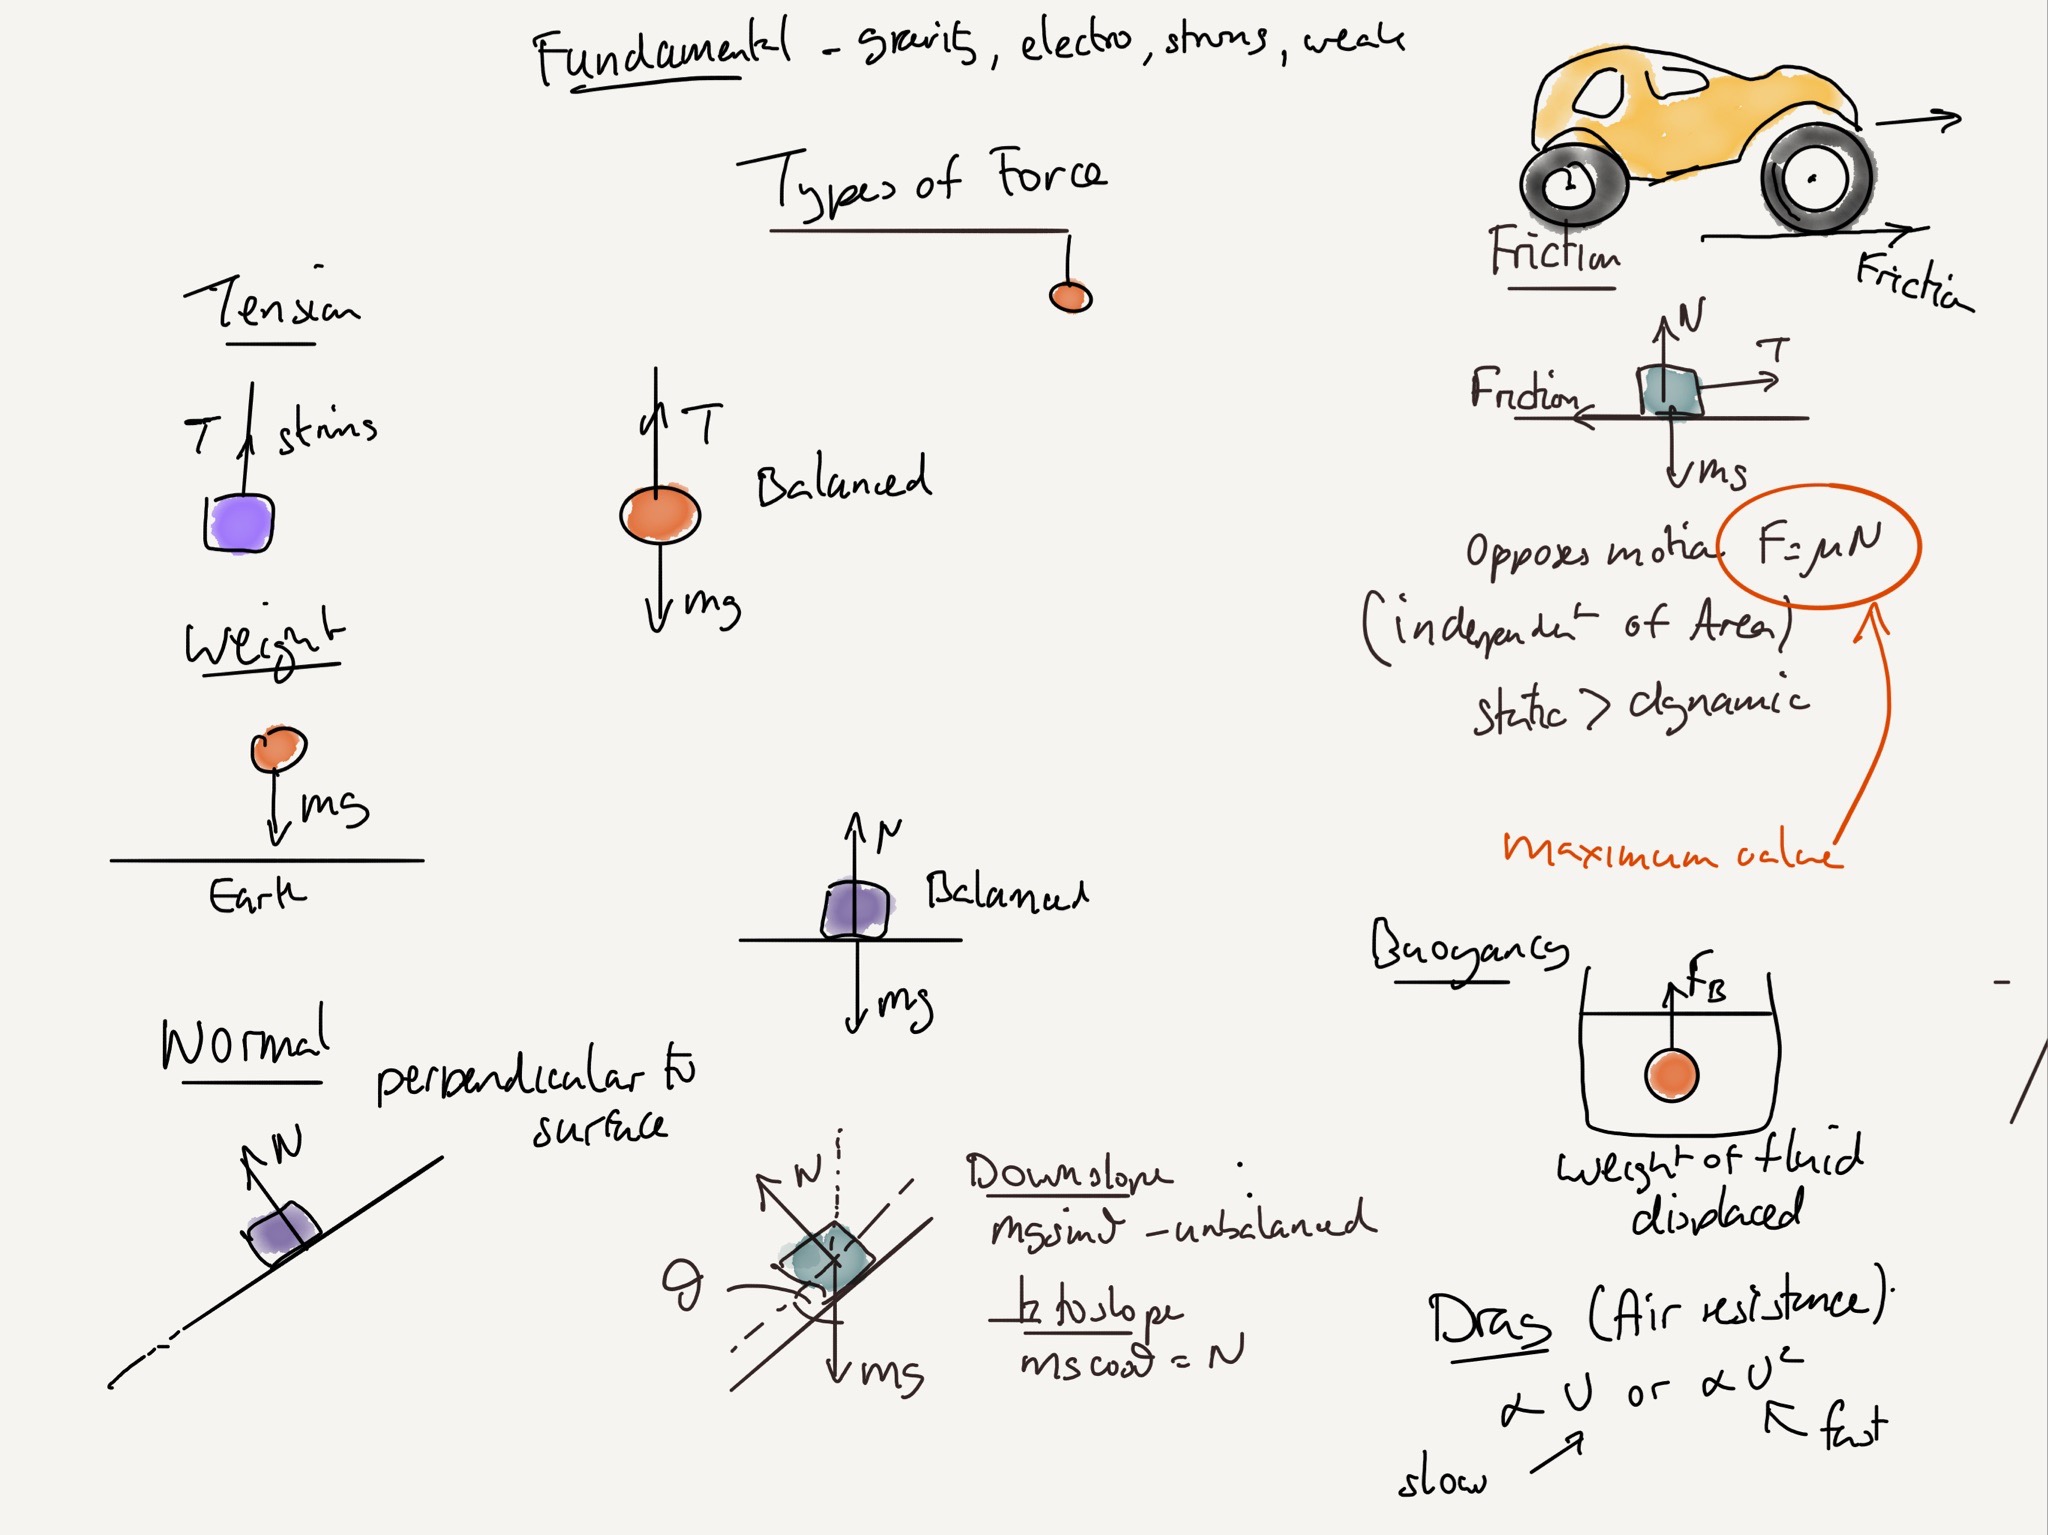 Fundamental - gravity, electro, strong, weak
Types of Force
Tension
T string
T
Balanced
mg
Weight
mg
Earth
N
Balanced
mg
Normal
perpendicular to
surface
N
N
θ
mg
Downslope
mg sinθ - unbalanced
to slope
mg cosθ = N
Friction
Friction
N
T
Friction
mg
Opposes motion F=μN
(independent of Area)
static > dynamic
maximum value
Buoyancy
FB
weight of fluid
displaced
Drag (Air resistance)
∝ v or ∝ v²
fast
slow